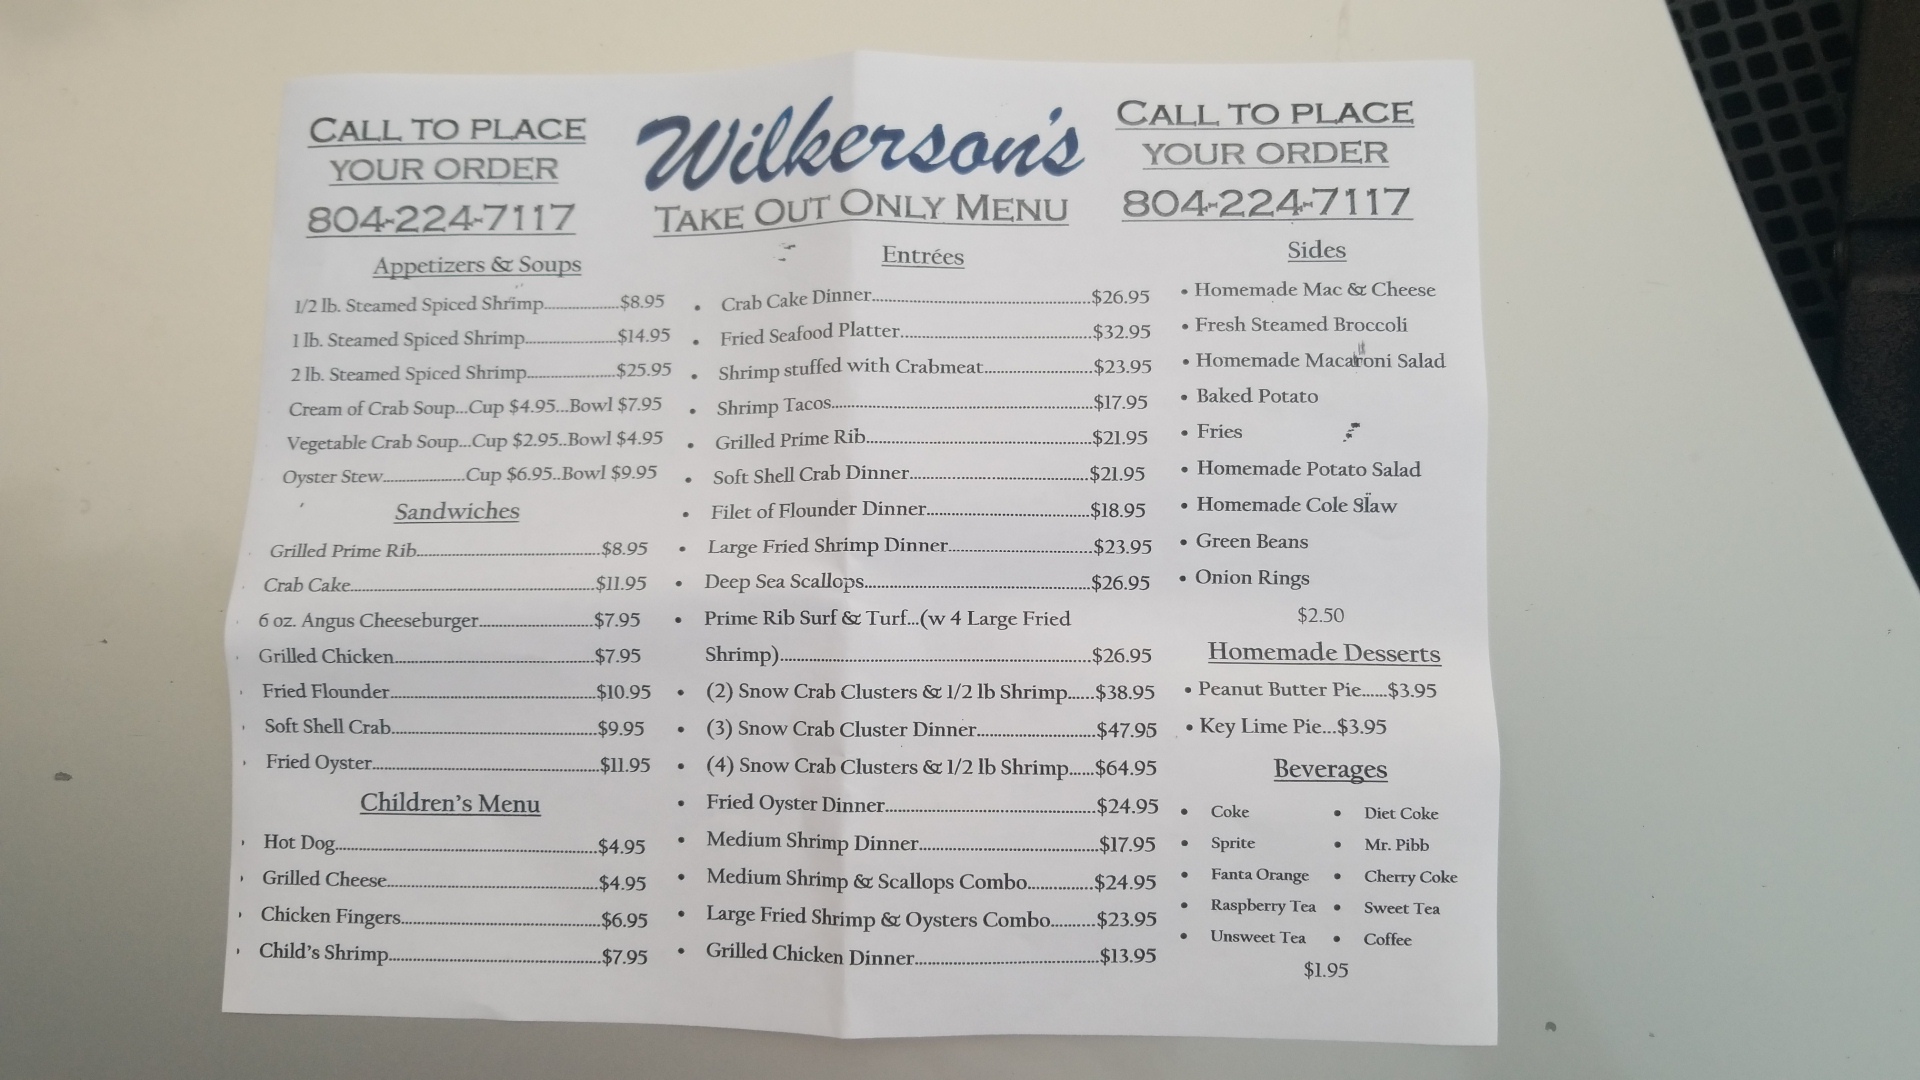 CALL TO PLACE
YOUR ORDER
804-224-7117
Wilkerson's
TAKE OUT ONLY MENU
CALL TO PLACE
YOUR ORDER
804-224-7117
Appetizers & Soups
1/2 lb. Steamed Spiced Shrimp...................$8.95
1 lb. Steamed Spiced Shrimp.......................$14.95
2 lb. Steamed Spiced Shrimp......................$25.95
Cream of Crab Soup...Cup $4.95...Bowl $7.95
Vegetable Crab Soup...Cup $2.95..Bowl $4.95
Oyster Stew.....................Cup $6.95..Bowl $9.95
Sandwiches
Grilled Prime Rib..............................................$8.95
Crab Cake..............................................................$11.95
6 oz. Angus Cheeseburger.............................$7.95
Grilled Chicken..................................................$7.95
Fried Flounder....................................................$10.95
Soft Shell Crab....................................................$9.95
Fried Oyster.........................................................$11.95
Children's Menu
Hot Dog..................................................................$4.95
Grilled Cheese.....................................................$4.95
Chicken Fingers..................................................$6.95
Child's Shrimp.....................................................$7.95
Entrées
• Crab Cake Dinner.......................................................$26.95
• Fried Seafood Platter................................................$32.95
• Shrimp stuffed with Crabmeat...........................$23.95
• Shrimp Tacos.................................................................$17.95
• Grilled Prime Rib.........................................................$21.95
• Soft Shell Crab Dinner.............................................$21.95
• Filet of Flounder Dinner.........................................$18.95
• Large Fried Shrimp Dinner....................................$23.95
• Deep Sea Scallops.........................................................$26.95
• Prime Rib Surf & Turf...(w 4 Large Fried
Shrimp)..............................................................................$26.95
• (2) Snow Crab Clusters & 1/2 lb Shrimp......$38.95
• (3) Snow Crab Cluster Dinner.............................$47.95
• (4) Snow Crab Clusters & 1/2 lb Shrimp......$64.95
• Fried Oyster Dinner.....................................................$24.95
• Medium Shrimp Dinner.............................................$17.95
• Medium Shrimp & Scallops Combo................$24.95
• Large Fried Shrimp & Oysters Combo...........$23.95
• Grilled Chicken Dinner..............................................$13.95
Sides
• Homemade Mac & Cheese
• Fresh Steamed Broccoli
• Homemade Macaroni Salad
• Baked Potato
• Fries
• Homemade Potato Salad
• Homemade Cole Slaw
• Green Beans
• Onion Rings
$2.50
Homemade Desserts
• Peanut Butter Pie......$3.95
• Key Lime Pie...$3.95
Beverages
• Coke • Diet Coke
• Sprite • Mr. Pibb
• Fanta Orange • Cherry Coke
• Raspberry Tea • Sweet Tea
• Unsweet Tea • Coffee
$1.95